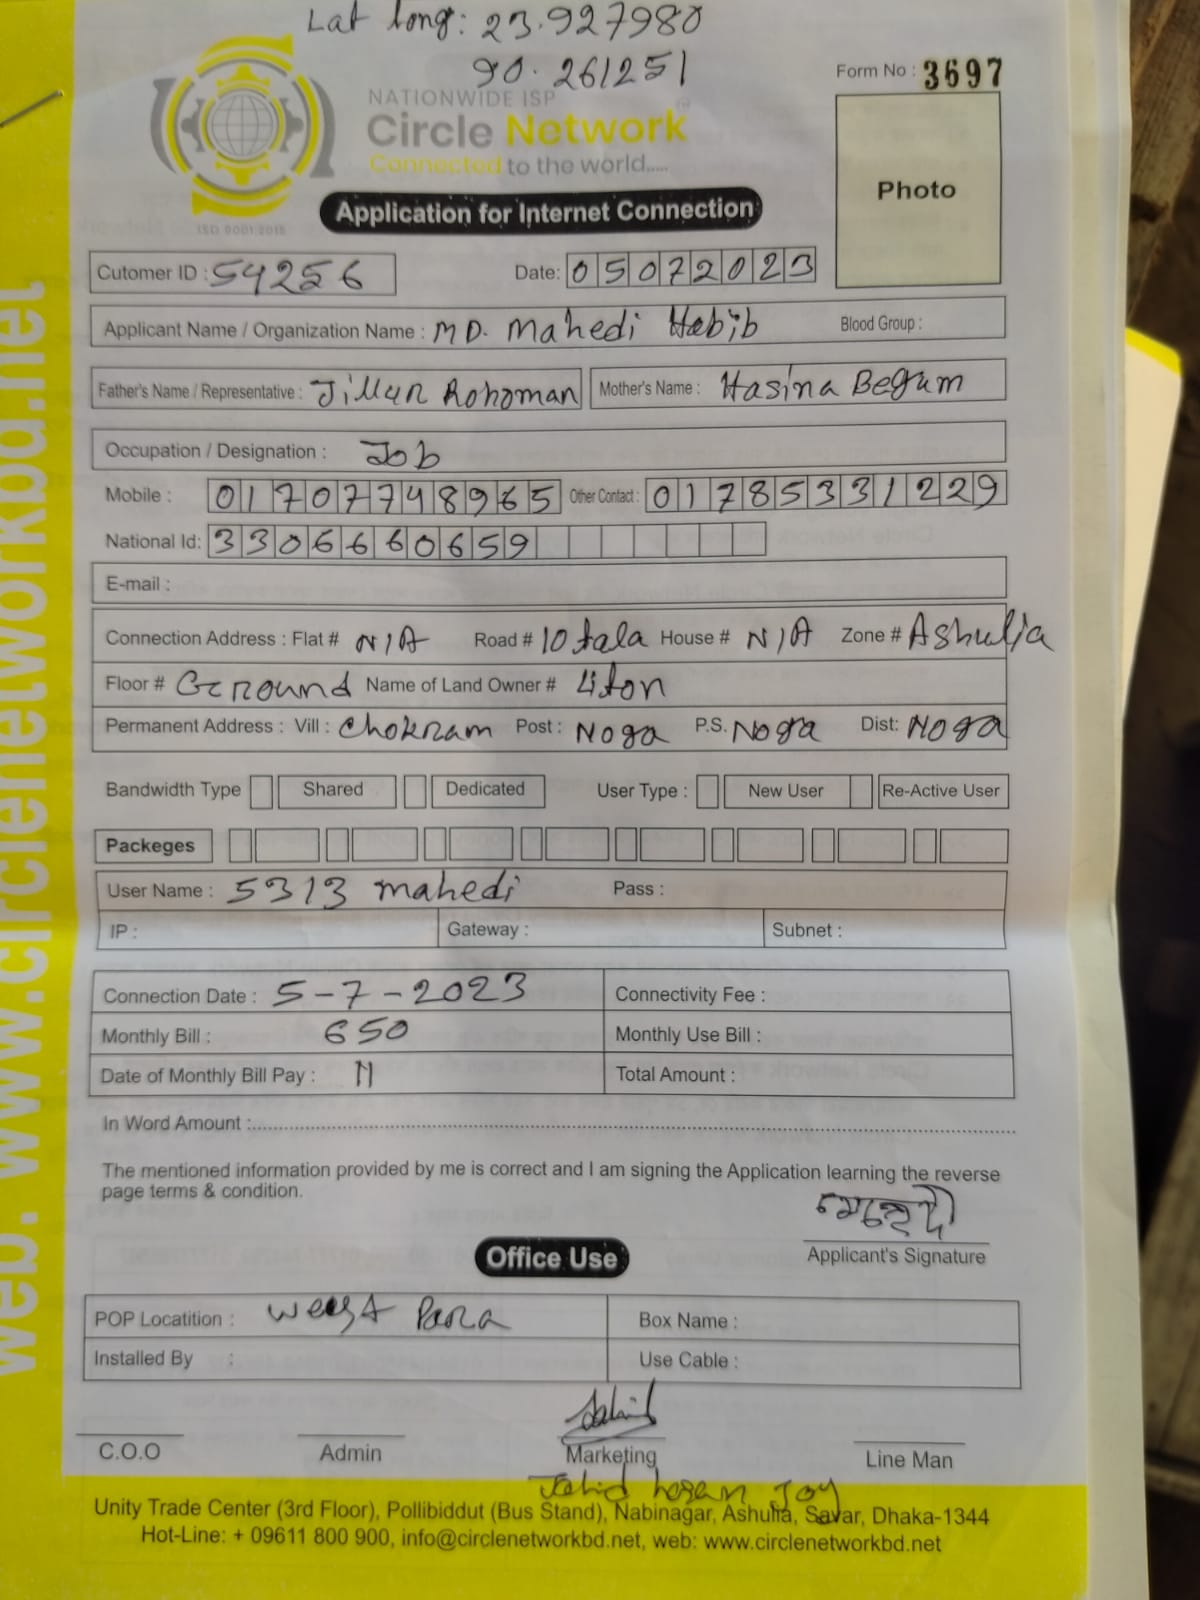 Lat long: 23.927980
90.261251
Form No : 3697
NATIONWIDE ISP
Circle Network
Connected to the world.....
ISO 9001:2015
Photo
Application for Internet Connection
Cutomer ID : 54256 Date: 05072023
Applicant Name / Organization Name : MD. Mahedi Habib Blood Group :
Father's Name / Representative : Jillur Rohoman Mother's Name : Hasina Begum
Occupation / Designation : Job
Mobile : 01707748965 Other Contact : 01785331229
National Id: 3306660659
E-mail :
Connection Address : Flat # N/A Road # 10 tala House # N/A Zone # Ashulia
Floor # Ground Name of Land Owner # Liton
Permanent Address : Vill : Chokram Post : Noga P.S. Noga Dist: Noga
Bandwidth Type Shared Dedicated User Type : New User Re-Active User
Packeges
User Name : 5313 mahedi Pass :
IP : Gateway : Subnet :
Connection Date : 5-7-2023 Connectivity Fee :
Monthly Bill : 650 Monthly Use Bill :
Date of Monthly Bill Pay : Total Amount :
In Word Amount :
The mentioned information provided by me is correct and I am signing the Application learning the reverse
page terms & condition.
মেহেদী
Applicant's Signature
Office Use
POP Locatition : Para Box Name :
Installed By : Use Cable :
C.O.O Admin Marketing Line Man
Joy
Unity Trade Center (3rd Floor), Pollibiddut (Bus Stand), Nabinagar, Ashulia, Savar, Dhaka-1344
Hot-Line: + 09611 800 900, info@circlenetworkbd.net, web: www.circlenetworkbd.net
web: www.circlenetworkbd.net